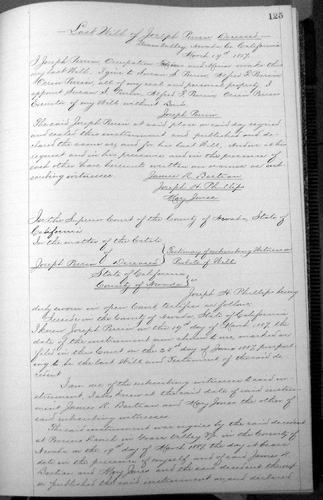 125
Last Will of Joseph Perrin Deceased
Grass Valley Nevada Co California
March 19th 1887.
I Joseph Perrin Occupation and make this
my last Will. I give to Susan S. Perrin,
Perrin, all of my real and personal property. I
appoint Susan S. Perrin, Perrin
Executors of my Will without Bonds.
Joseph Perrin
The said Joseph Perrin at said place on said day signed
and sealed this instrument and published and de
clared the same as, and for his last Will. And we at his
request and in his presence and in the presence of
each other have hereunto written our names as sub
scribing witnesses.
James R. Bastian
Joseph H. Phillips
May Jones
In the Superior Court of the County of Nevada, State of
California
In the matter of the Estate
of
Joseph Perrin Deceased
Testimony of subscribing Witness on
Probate of Will
State of California
County of Nevada
ss
Joseph H. Phillips being
duly sworn in open Court testifies as follows
I reside in the County of Nevada, State of California
I knew Joseph Perrin on the 19th day of March 1887, the
date of the instrument now shown to me, marked as
filed in this Court on the day of June 1887, purport
ing to be the last Will and Testament of the said de
ceased
I am one of the subscribing witnesses to said in
strument. I also knew at the said date of said instru
ment James R. Bastian and May Jones the other of
said subscribing witnesses
The said instrument was signed by the said deceased
at Perrins Ranch in Grass Valley in the County of
Nevada on the 19th day of March 1887 the day it bears
date in the presence of myself and of said James R.
Bastian and May Jones and the said deceased there
published the said instrument and declared